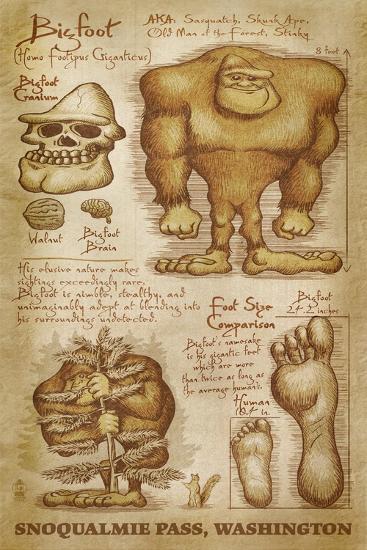 Bigfoot
(Homo Footipus Giganticus)
AKA: Sasquatch, Skunk Ape,
Old Man of the Forest, Stinky
8 feet
Bigfoot
Cranium
Walnut
Bigfoot
Brain
His elusive nature makes
sightings exceedingly rare.
Bigfoot is nimble, stealthy, and
unimaginably adept at blending into
his surroundings undetected.
Foot Size
Comparison
Bigfoot
24.2 inches
Bigfoot's namesake
is his gigantic feet
which are more
than twice as long as
the average human's.
Human
in.
SNOQUALMIE PASS, WASHINGTON